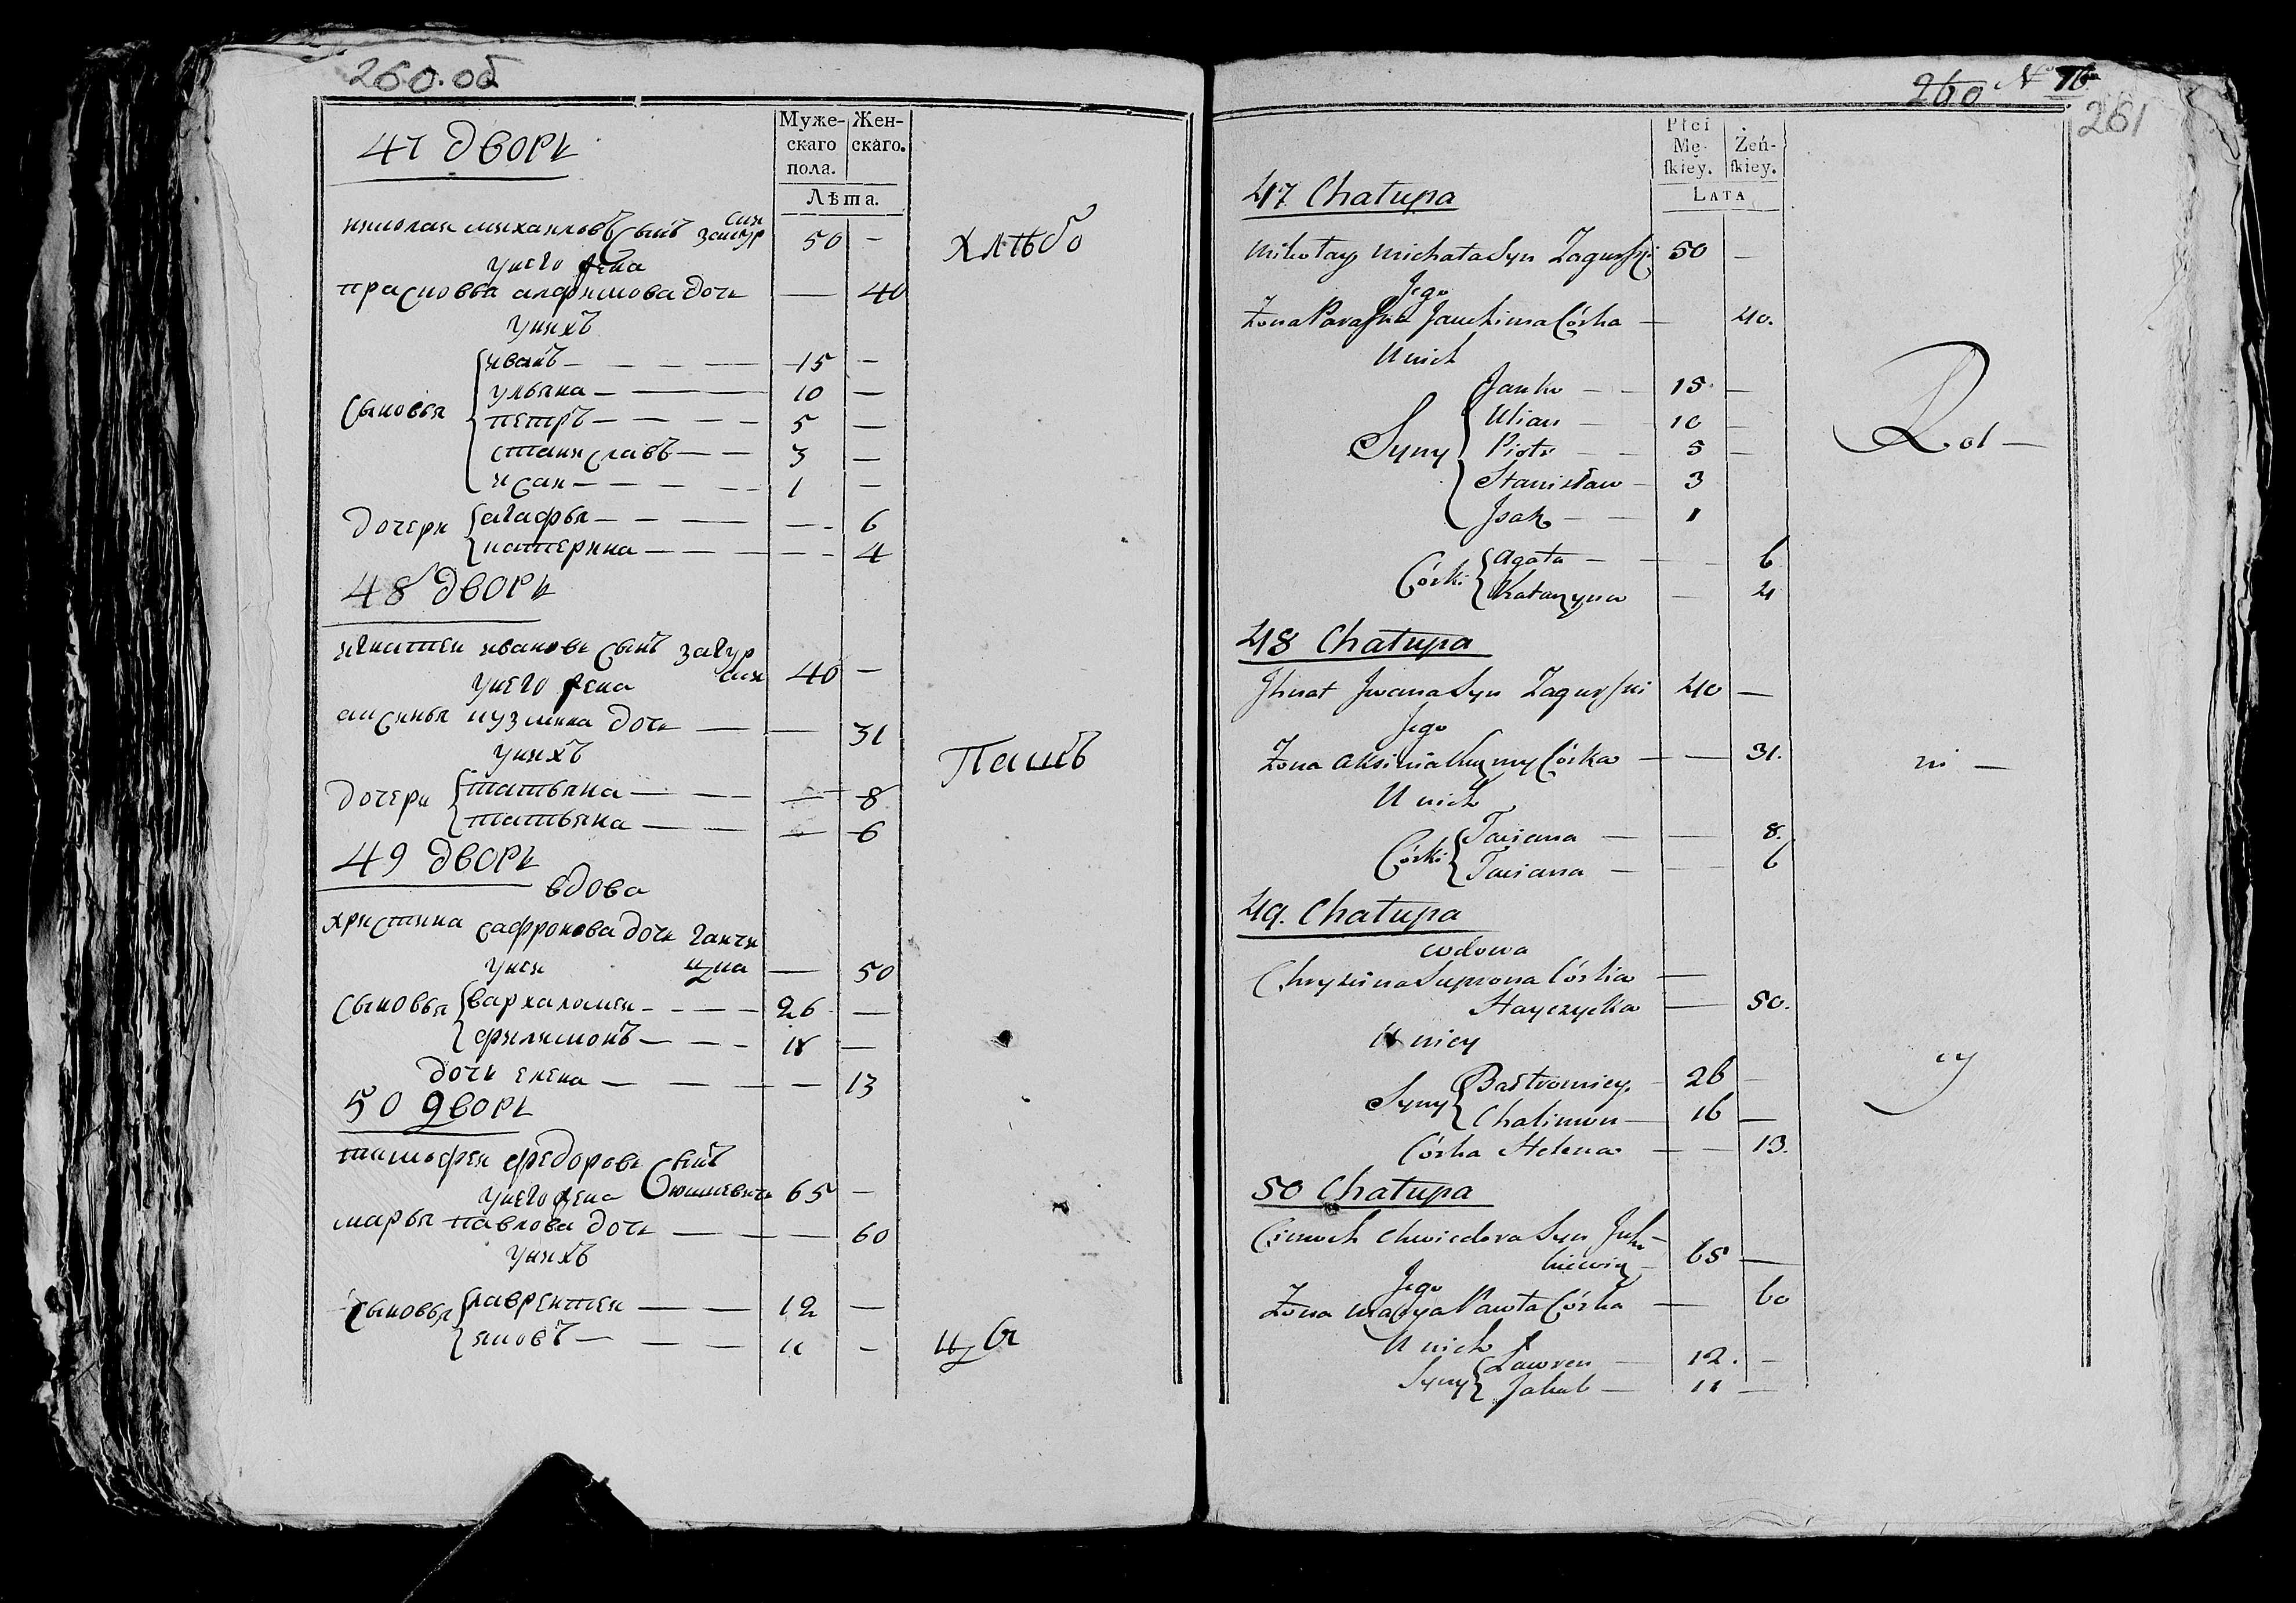 260.об
47 дворъ
Муже-
скаго
пола.
Жен-
скаго.
Лѣта.
николаи михаиловъ сынъ загур
ски 50 —
унего жена
прасковья алфимова дочь — 40
унихъ
сыновья
иванъ — 15 —
ульяна — 10 —
петръ — 5 —
станиславъ — 3 —
исак — 1 —
дочери
агафья — — 6
катерина — — 4
хлѣбо
48 дворъ
игнатеи ивановъ сынъ загур
ски 40 —
унего жена
аксинья кузмина дочь — — 31
унихъ
дочери
татьяна — — 8
татьяна — — 6
пашъ
49 дворъ
вдова
христина сафронова дочь
унеи — 50
сыновья
вархаломеи — 26 —
филимонъ —
дочь елена — — 13
50 дворъ
тимофеи федоровъ сынъ
унего жена 65 —
марья павлова дочь — — 60
унихъ
сыновья
лаврентеи — 12 —
яковъ — 11 —
цы
260 №
261
Płci
Mę-
ſkiey.
Żeń-
ſkiey.
LATA
47 Chałupa
Mikołay Michała Syn Zagurſki 50 —
Jego
Zona Paraſka Jauchima Córka — 40.
U nich
Syny
Janko — 15 —
Ulian — 10 —
Piotr — 5 —
Stanisław — 3
Jsak — 1
Córki
Agata — — 6
Katarzyna — 4
Rol —
48 Chałupa
Jhnat Jwana Syn Zagurſki 40 —
Jego
Zona Aksinia Kuzmy Córka — — 31.
U nich
Córki
Taciana — — 8.
Taciana — — 6
ni —
49. Chałupa
wdowa
Chrystina Suprona Córka —
Hayczycka — 50.
U niey
Syny
Bałtromiey 26 —
Chalimon — 16 —
Córka Helena — — 13.
cy
50 Chałupa
Cimoch Chwiedora Syn
65 —
Jego
Zona Marya Pawła Córka — 60
U nich
Syny
Lawren — 12. —
Jakub — 11 —